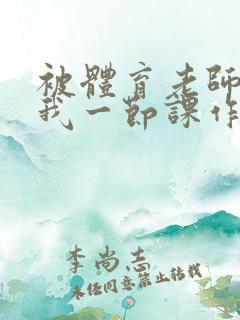 被體育老師
我一節課作
李尚志
未任同意禁止转载